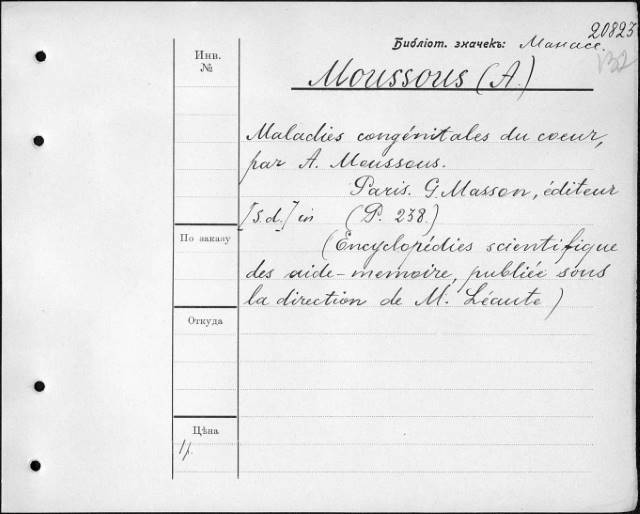 20823
Библіот. значекъ: Манасе.
132
Инв.
№
Moussous (A.)
Maladies congénitales du coeur,
par A. Moussous.
Paris. G. Masson, éditeur
[s.d.] in (P. 238.)
По заказу
(Encyclopédies scientifique
des aide-memoire, publiée sous
la direction de M. Léaute)
Откуда
Цѣна
1р.